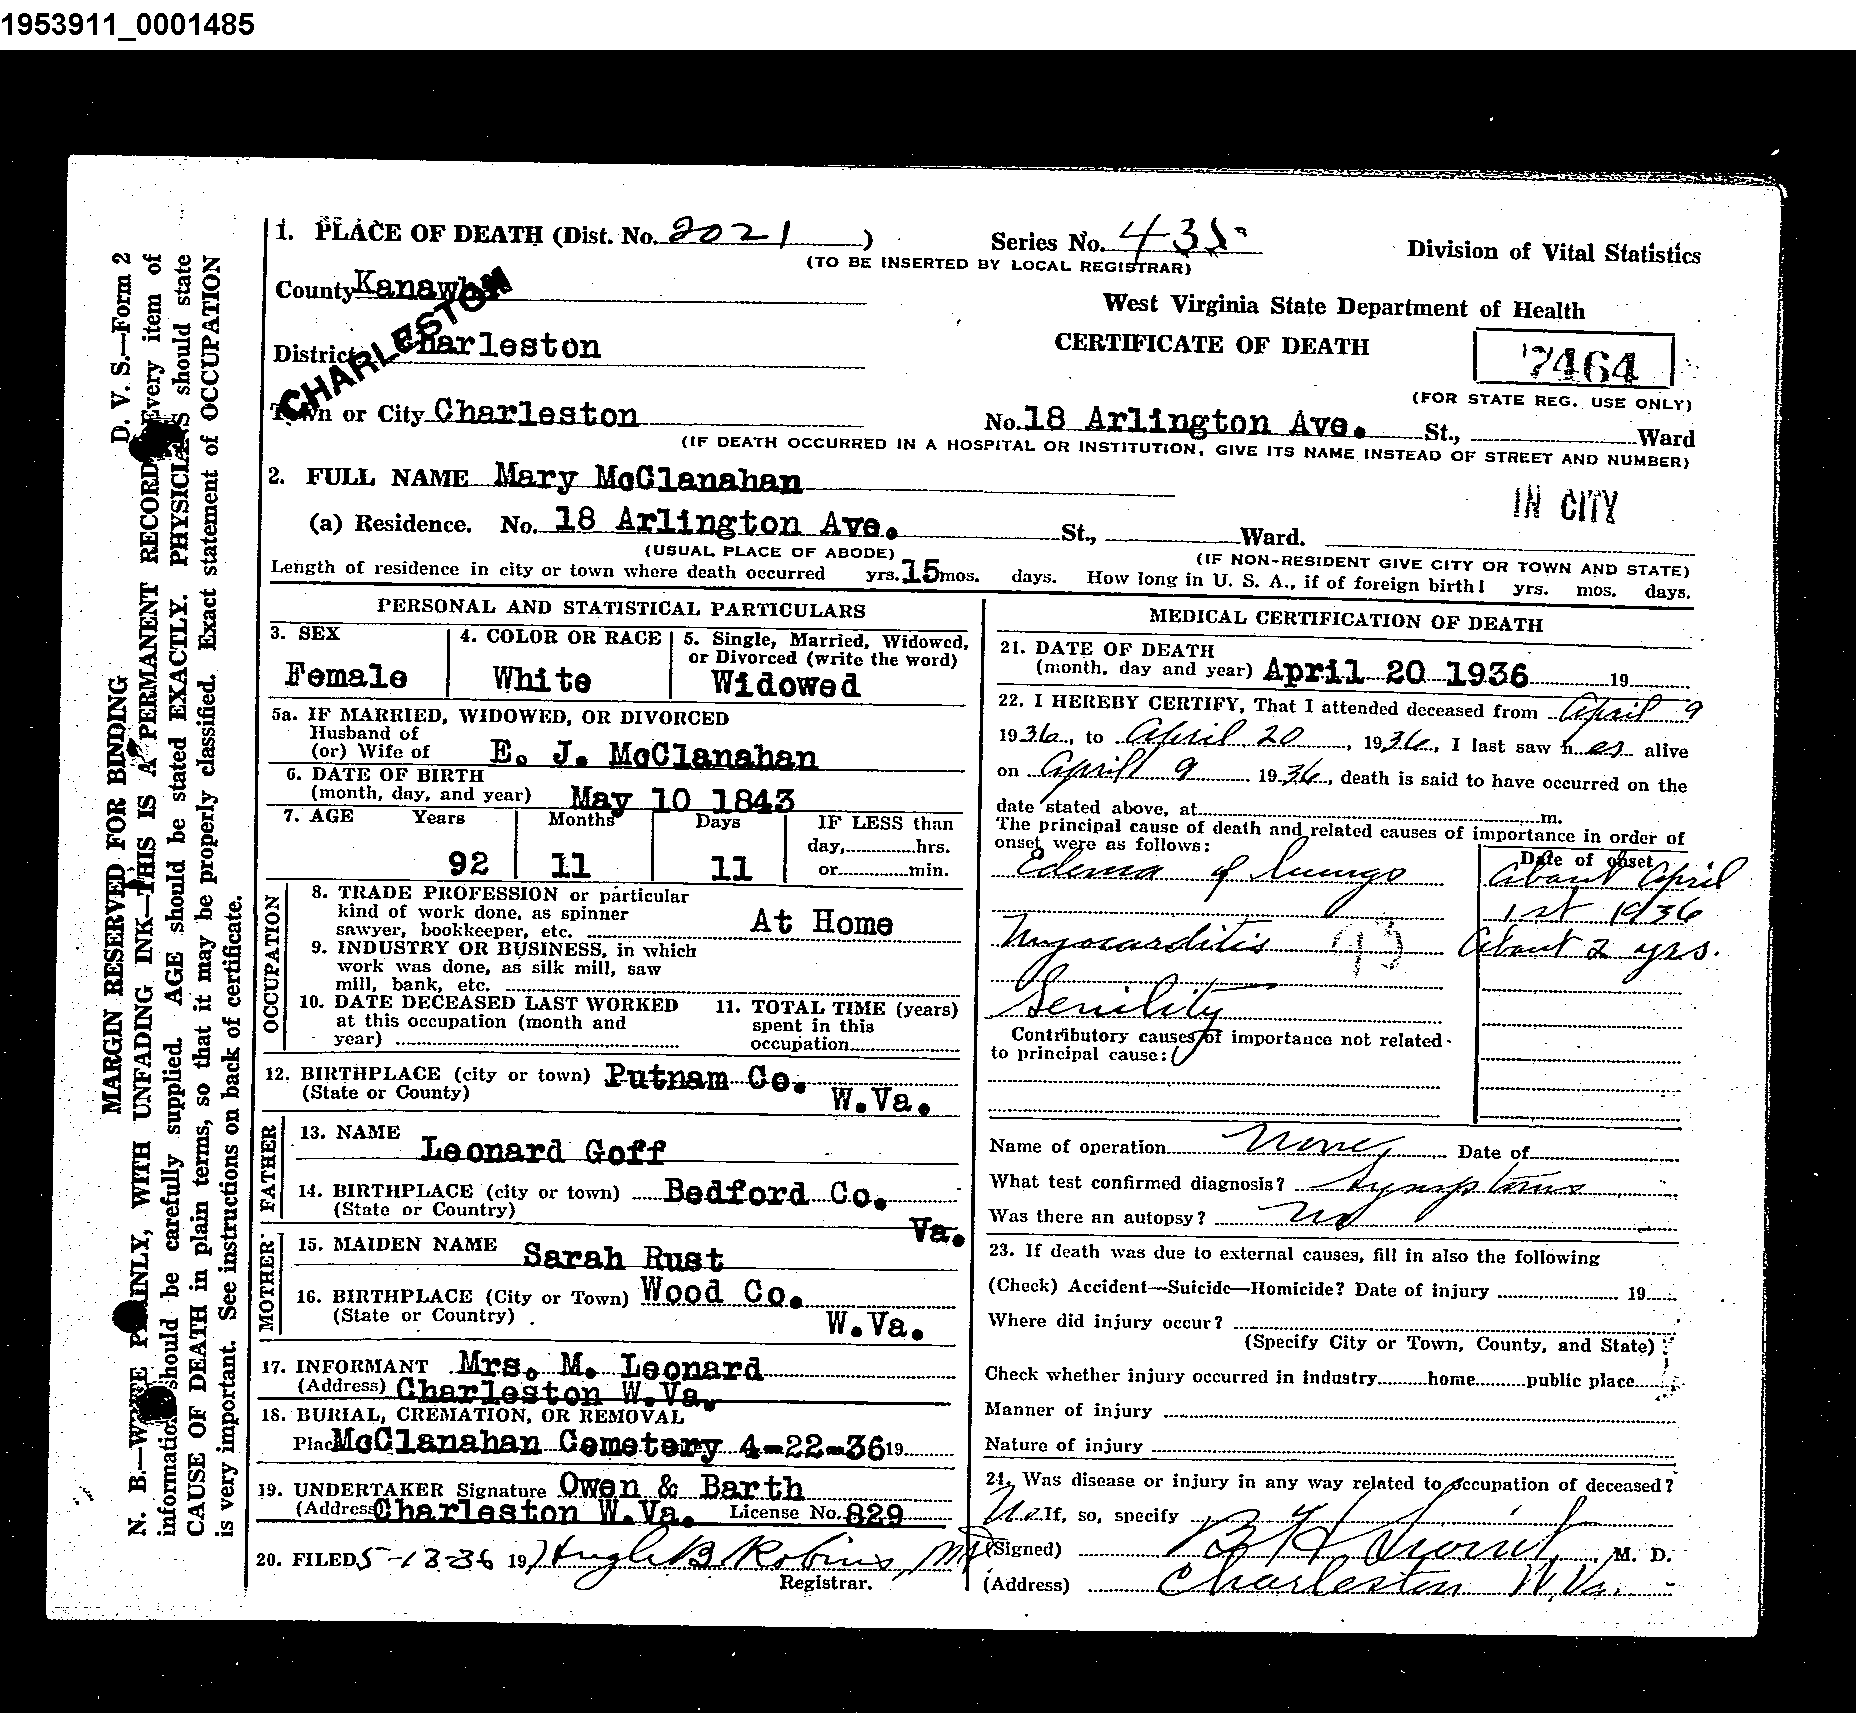 1953911_0001485
D. V. S.—Form 2
MARGIN RESERVED FOR BINDING
N. B.—WRITE PLAINLY, WITH UNFADING INK—THIS IS A PERMANENT RECORD. Every item of
information should be carefully supplied. AGE should be stated EXACTLY. PHYSICIANS should state
CAUSE OF DEATH in plain terms, so that it may be properly classified. Exact statement of OCCUPATION
is very important. See instructions on back of certificate.
1. PLACE OF DEATH (Dist. No. 2021 )
Series No. 435
(TO BE INSERTED BY LOCAL REGISTRAR)
Division of Vital Statistics
County Kanawha
West Virginia State Department of Health
CHARLESTON
District Charleston
CERTIFICATE OF DEATH
7464
(FOR STATE REG. USE ONLY)
Town or City Charleston
No. 18 Arlington Ave. St., Ward
(IF DEATH OCCURRED IN A HOSPITAL OR INSTITUTION, GIVE ITS NAME INSTEAD OF STREET AND NUMBER)
2. FULL NAME Mary McClanahan
IN CITY
(a) Residence. No. 18 Arlington Ave. St., Ward.
(USUAL PLACE OF ABODE)
(IF NON-RESIDENT GIVE CITY OR TOWN AND STATE)
Length of residence in city or town where death occurred yrs. 15 mos. days. How long in U. S. A., if of foreign birth! yrs. mos. days.
PERSONAL AND STATISTICAL PARTICULARS
3. SEX
Female
4. COLOR OR RACE
White
5. Single, Married, Widowed,
or Divorced (write the word)
Widowed
5a. IF MARRIED, WIDOWED, OR DIVORCED
Husband of
(or) Wife of E. J. McClanahan
6. DATE OF BIRTH
(month, day, and year) May 10 1843
7. AGE Years Months Days IF LESS than
day, hrs.
92 11 11 or min.
OCCUPATION
8. TRADE PROFESSION or particular
kind of work done, as spinner
sawyer, bookkeeper, etc. At Home
9. INDUSTRY OR BUSINESS, in which
work was done, as silk mill, saw
mill, bank, etc.
10. DATE DECEASED LAST WORKED
at this occupation (month and
year)
11. TOTAL TIME (years)
spent in this
occupation
12. BIRTHPLACE (city or town) Putnam Co.
(State or County) W.Va.
FATHER
13. NAME
Leonard Goff
14. BIRTHPLACE (city or town) Bedford Co.
(State or Country) Va.
MOTHER
15. MAIDEN NAME Sarah Rust
16. BIRTHPLACE (City or Town) Wood Co.
(State or Country) W.Va.
17. INFORMANT Mrs. M. Leonard
(Address) Charleston W.Va.
18. BURIAL, CREMATION, OR REMOVAL
Place McClanahan Cemetery 4-22-36 19
19. UNDERTAKER Signature Owen & Barth
(Address Charleston W.Va. License No. 829
20. FILED 5-13-36 19 Hugh B Robins, MD
Registrar.
MEDICAL CERTIFICATION OF DEATH
21. DATE OF DEATH
(month, day and year) April 20 1936 19
22. I HEREBY CERTIFY, That I attended deceased from April 9
1936, to April 20, 1936, I last saw h er alive
on April 9 1936, death is said to have occurred on the
date stated above, at m.
The principal cause of death and related causes of importance in order of
onset were as follows:
Date of onset
Edema of lungs About April
1st 1936
Myocarditis 93 About 2 yrs.
Senility
Contributory causes of importance not related
to principal cause:
Name of operation None Date of
What test confirmed diagnosis? Symptoms
Was there an autopsy? No
23. If death was due to external causes, fill in also the following
(Check) Accident—Suicide—Homicide? Date of injury 19
Where did injury occur?
(Specify City or Town, County, and State)
Check whether injury occurred in industry home public place
Manner of injury
Nature of injury
24. Was disease or injury in any way related to occupation of deceased?
No If, so, specify
(Signed) B H Swint, M. D.
(Address) Charleston W.Va.